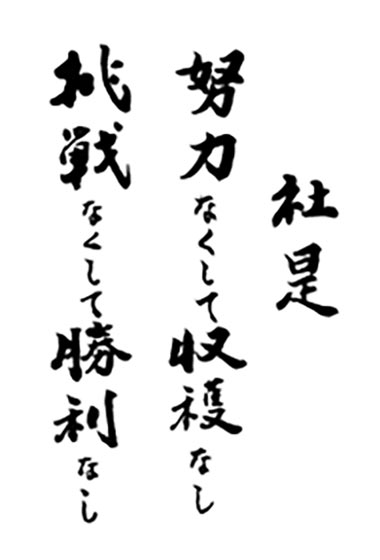 社是
努力なくして収穫なし
挑戦なくして勝利なし